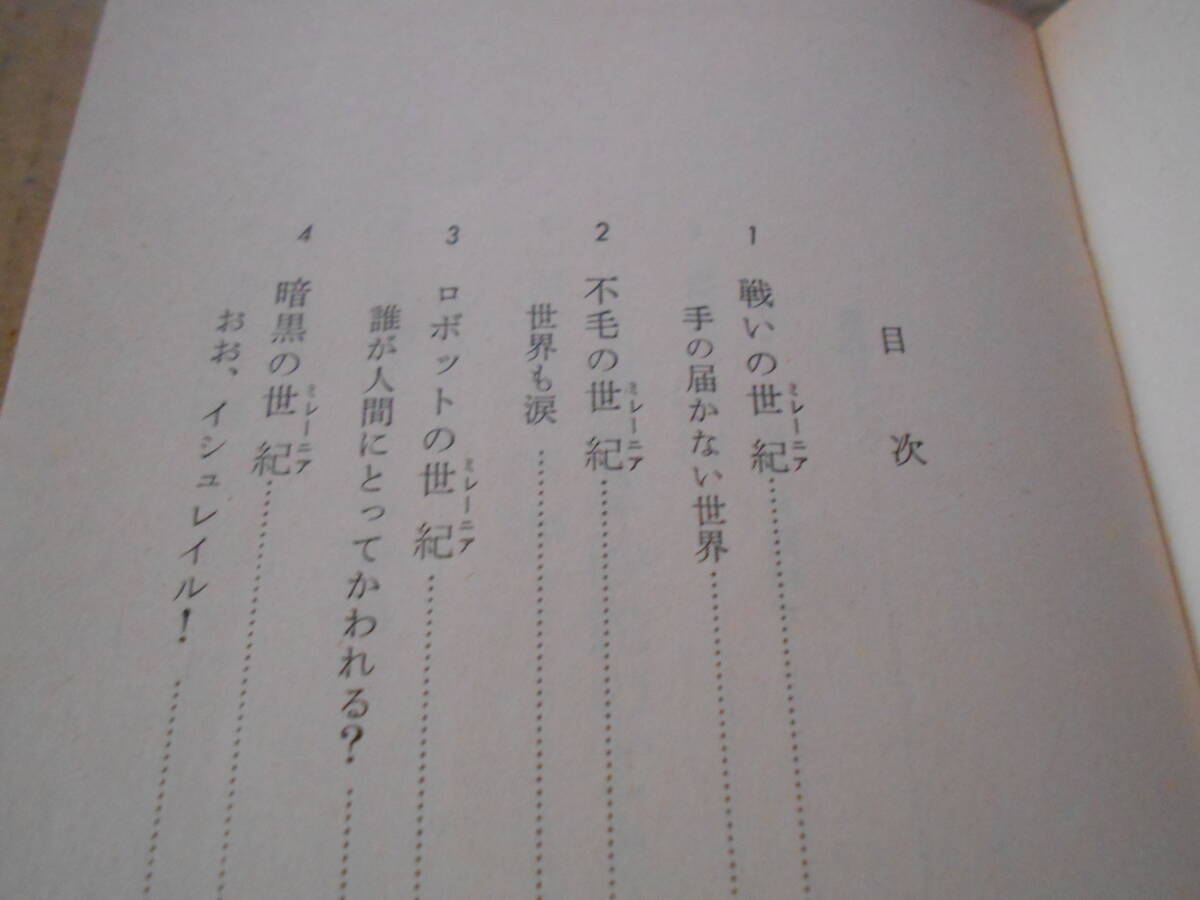 目次
1 戦いの世紀ミレーニア…………
手の届かない世界…………
2 不毛の世紀ミレーニア…………
世界も涙…………
3 ロボットの世紀ミレーニア…………
誰が人間にとってかわれる?…………
4 暗黒の世紀ミレーニア…………
おお、イシュレイル!…………